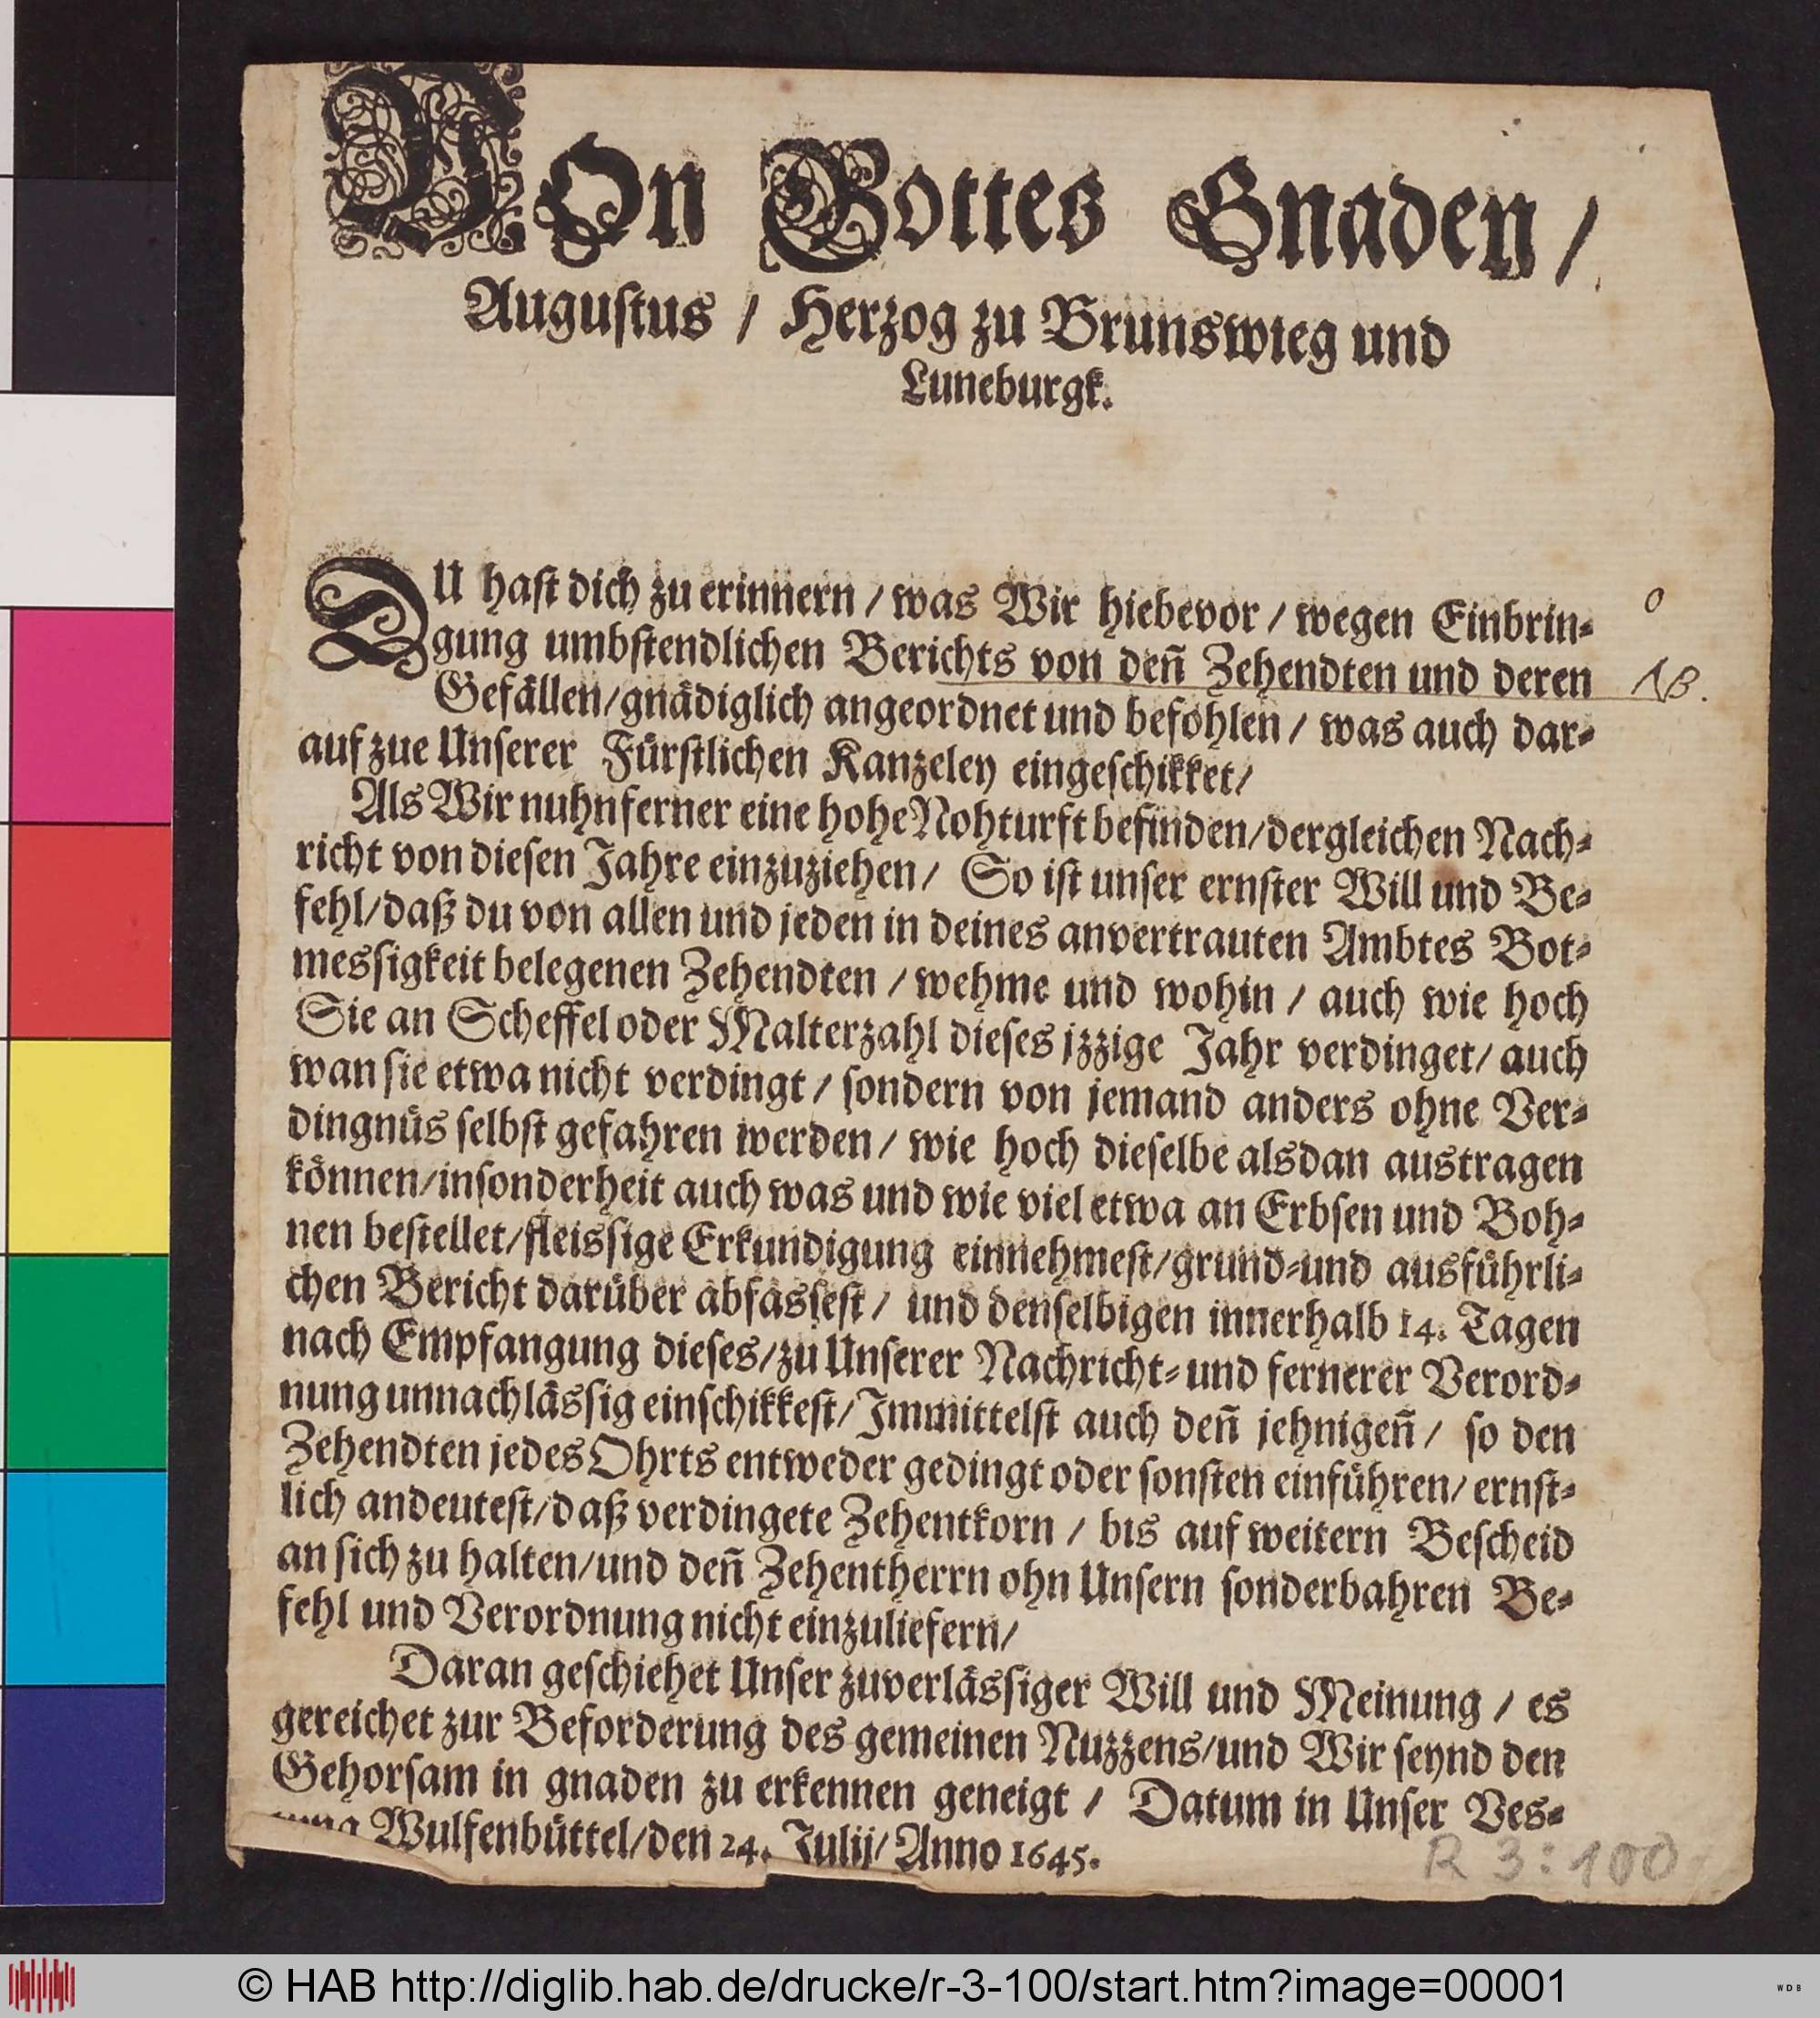 VOn Gottes Gnaden /
Augustus / Herzog zu Brunswieg und
Luneburgk.
DU hast dich zu erinnern / was Wir hiebevor / wegen Einbrin-
gung umbstendlichen Berichts von deñ Zehendten und deren
NB.
Gefällen/gnädiglich angeordnet und befohlen / was auch dar-
auf zue Unserer Fürstlichen Kanzeley eingeschikket/
Als Wir nuhn ferner eine hohe Nohturft befinden/dergleichen Nach-
richt von diesen Jahre einzuziehen/ So ist unser ernster Will und Be-
fehl/daß du von allen und jeden in deines anvertrauten Ambtes Bot-
messigkeit belegenen Zehendten / wehme und wohin / auch wie hoch
Sie an Scheffel oder Malterzahl dieses izzige Jahr verdinget/ auch
wan sie etwa nicht verdingt / sondern von jemand anders ohne Ver-
dingnüs selbst gefahren werden/ wie hoch dieselbe alsdan austragen
können/insonderheit auch was und wie viel etwa an Erbsen und Boh-
nen bestellet/fleissige Erkundigung einnehmest/grund-und ausführli-
chen Bericht darüber abfassest/ und denselbigen innerhalb 14. Tagen
nach Empfangung dieses/zu Unserer Nachricht-und fernerer Verord-
nung unnachlässig einschikkest/Immittelst auch deñ jehnigeñ/ so den
Zehendten jedes Ohrts entweder gedingt oder sonsten einführen/ ernst-
lich andeutest/daß verdingete Zehentkorn / bis auf weitern Bescheid
an sich zu halten/und deñ Zehentherrn ohn Unsern sonderbahren Be-
fehl und Verordnung nicht einzuliefern/
Daran geschiehet Unser zuverlässiger Will und Meinung / es
gereichet zur Beforderung des gemeinen Nuzzens/und Wir seynd den
Gehorsam in gnaden zu erkennen geneigt / Datum in Unser Ves-
Wulfenbüttel/den 24. Julij/Anno 1645.
R 3:100
© HAB http://diglib.hab.de/drucke/r-3-100/start.htm?image=00001
WDB